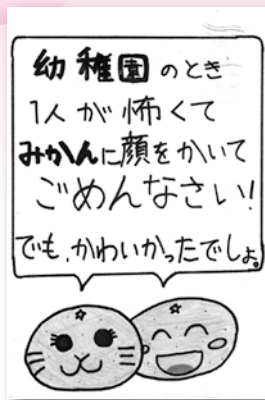 幼稚園のとき
1人が怖くて
みかんに顔をかいて
ごめんなさい!
でも、かわいかったでしょ。